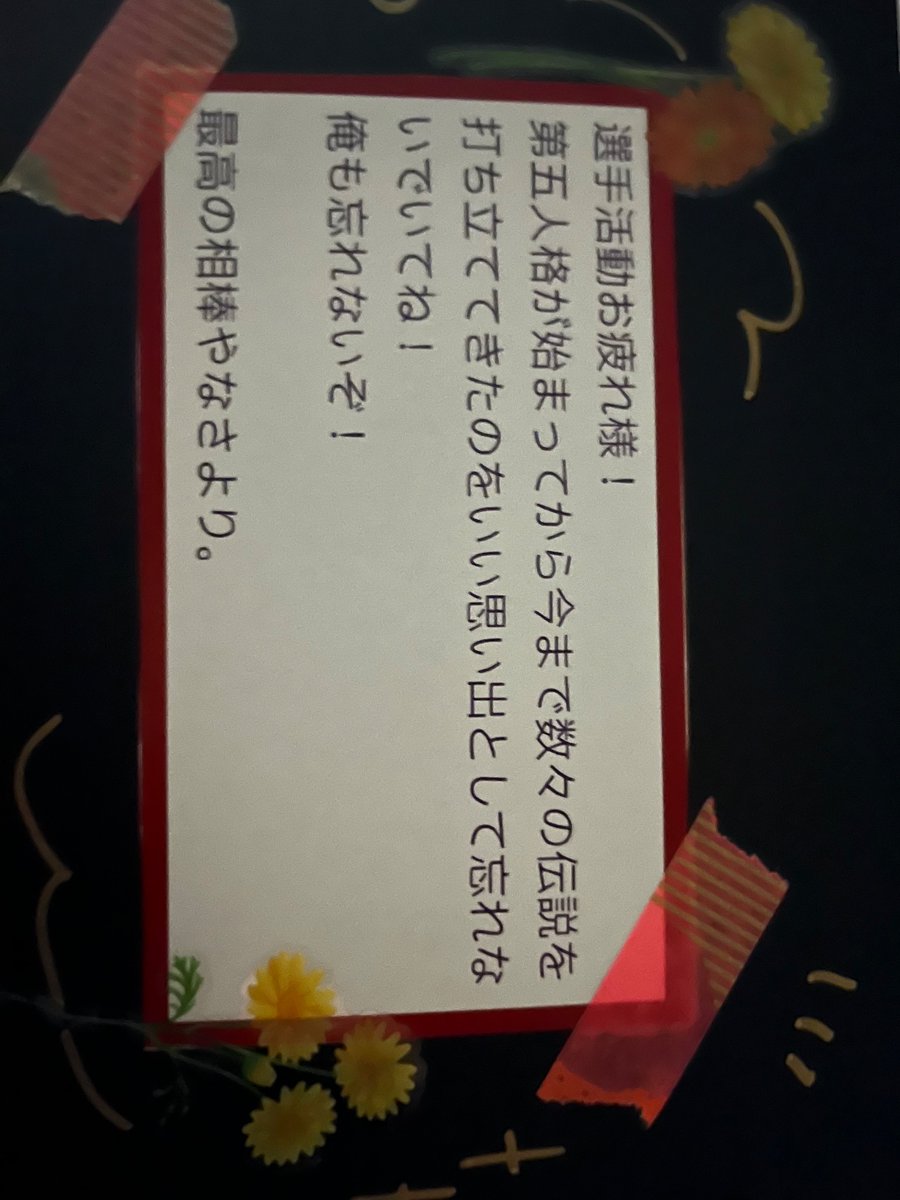 選手活動お疲れ様！
第五人格が始まってから今まで数々の伝説を
打ち立ててきたのをいい思い出として忘れな
いでいてね！
俺も忘れないぞ！
最高の相棒やなさより。